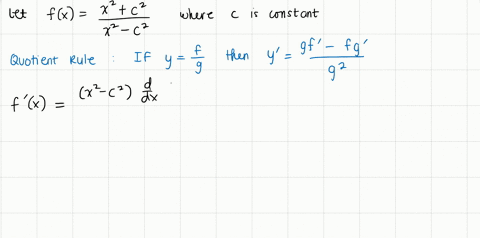 Let f(x) = (x² + c²)/(x² - c²) where c is constant
Quotient Rule : If y = f/g then y' = (gf' - fg')/g²
f'(x) = (x² - c²) d/dx